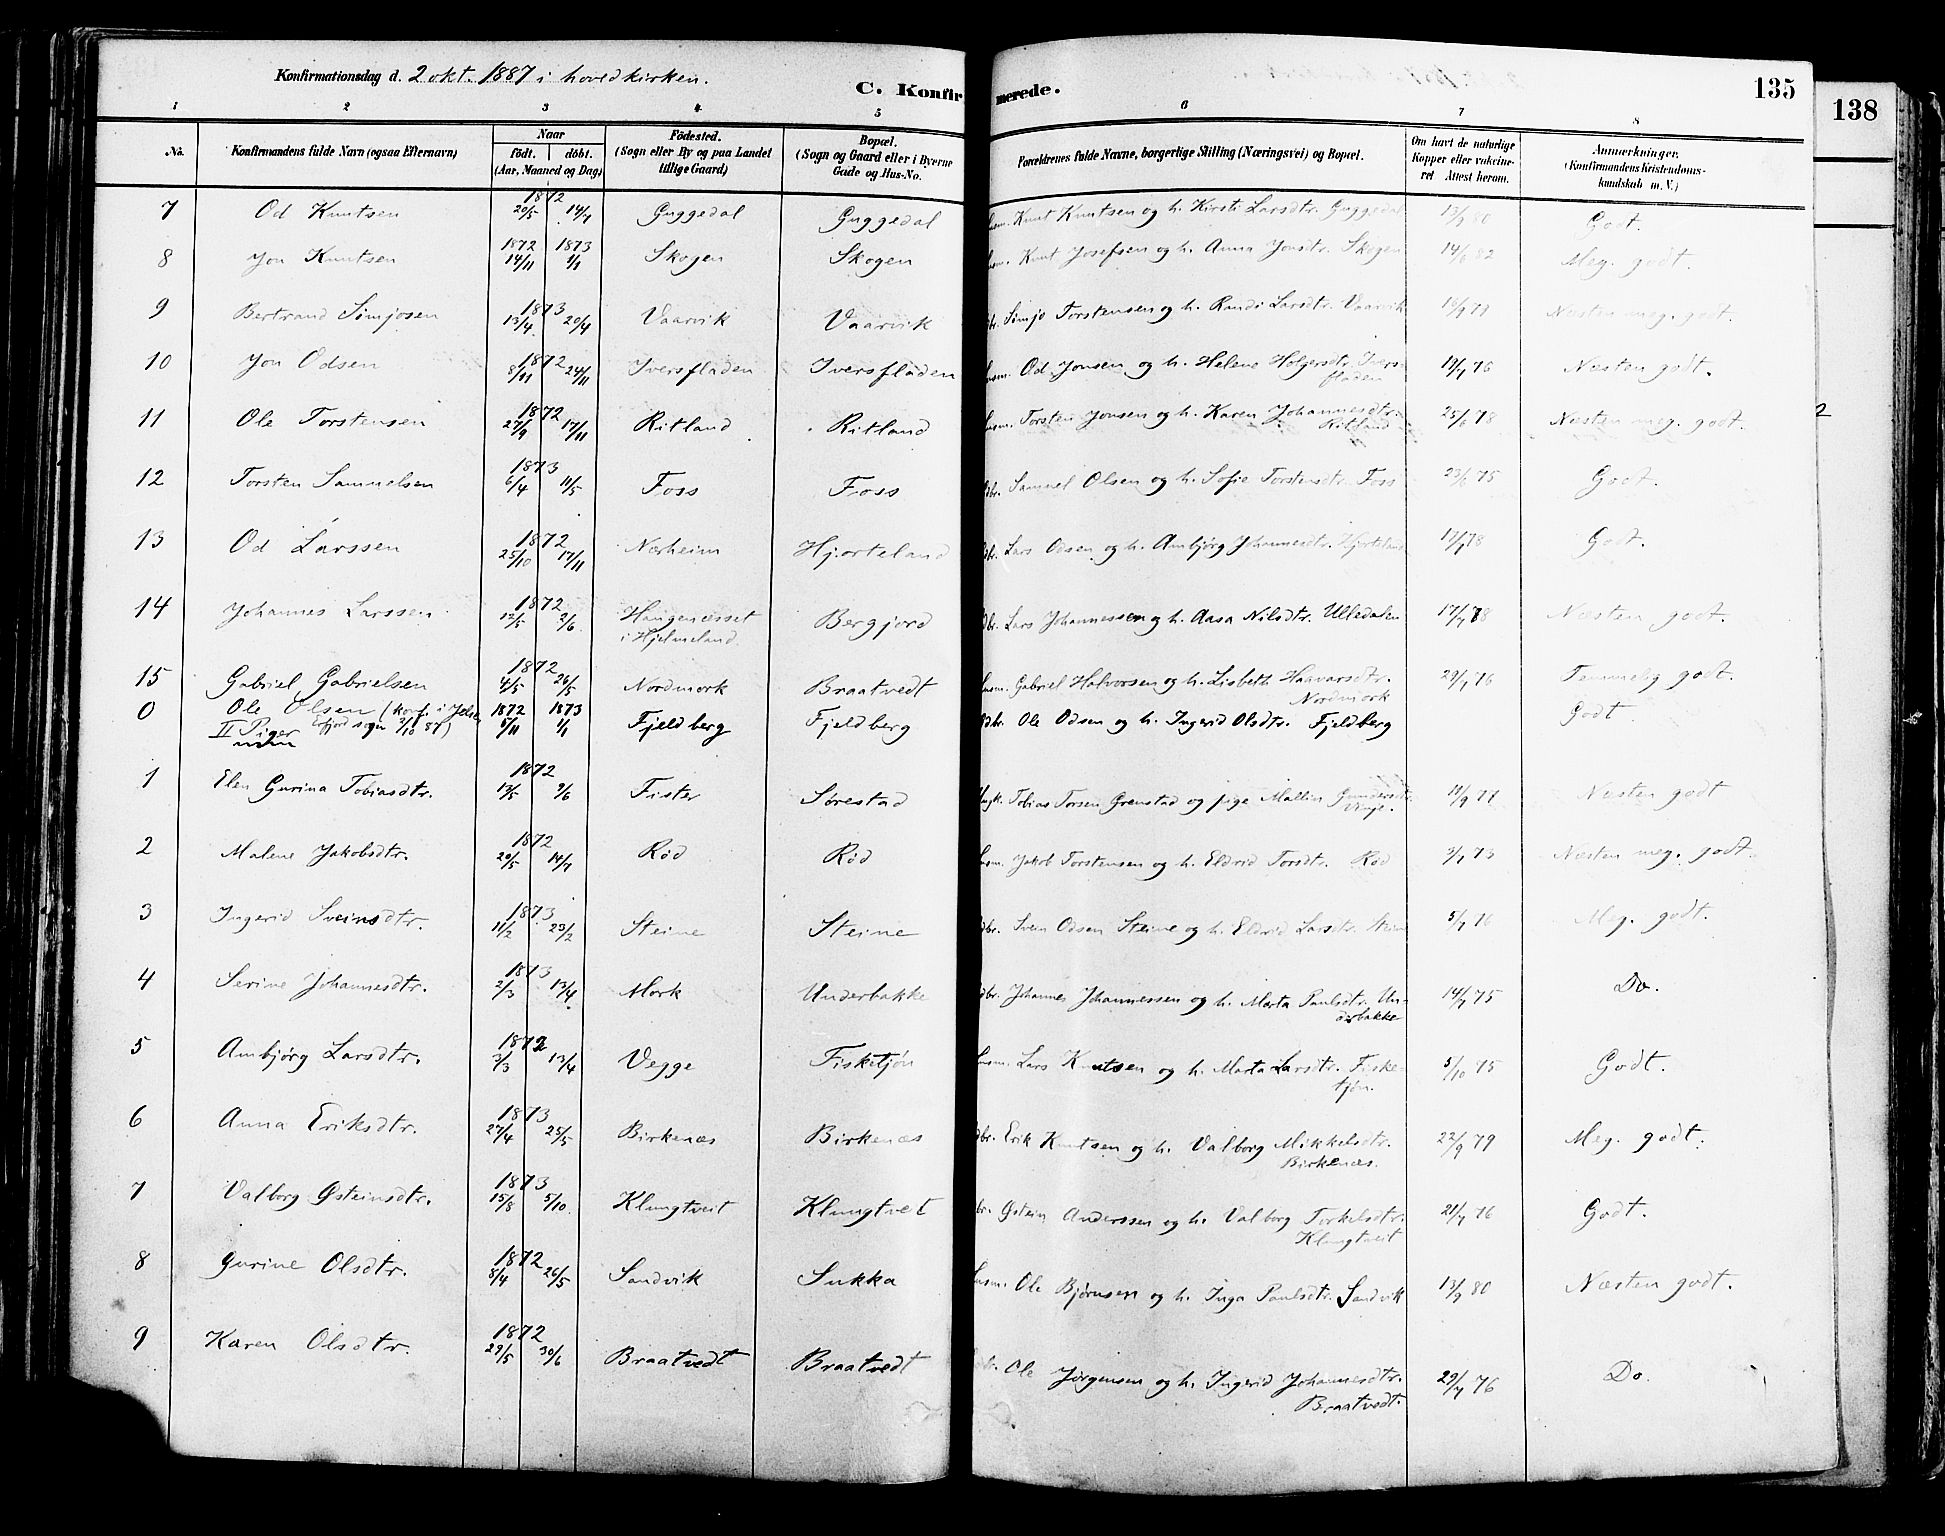 Konfirmationsdag d. 2 okt. 1887 i hovedkirken.
C. Konfirmerede.
135
138
1 2 3 4 5 6 7 8
No. Konfirmandens fulde Navn (ogsaa Efternavn) Naar födt. döbt. (Aar, Maaned og Dag) Födested. (Sogn eller By og paa Landet tillige Gaard) Bopæl. (Sogn og Gaard eller i Byerne Gade og Hus-No. Forældrenes fulde Navne, borgerlige Stilling (Næringsvei) og Bopæl. Om havt de naturlige Kopper eller vakcineret Attest herom. Anmærkninger. (Konfirmandens Kristendomskundskab m. V.)
7 Od Knutsen 1872 20/5 14/7 Guggedal Guggedal usm. Knut Knutsen og h. Kirsti Larsdtr. Guggedal 13/9 80 Godt.
8 Jon Knutsen 1872 14/11 1873 1/1 Skogen Skogen usm. Knut Josefsen og h. Anna Jonsdtr. Skogen 14/6 82 Meg. godt.
9 Bertrand Simjosen 1873 13/4 20/4 Vaarvik Vaarvik dbr. Simjo Torstensen og h. Randi Larsdtr. Vaarvik Næsten meg. godt.
10 Jon Odsen 1872 8/11 24/11 Iversfladen Iversfladen usm. Od Jonsen og h. Helene Holgersdtr. Iversfladen 19/7 76 Næsten godt.
11 Ole Torstensen 1872 27/9 17/11 Ritland Ritland usm. Torsten Jonsen og h. Karen Johannesdtr. Ritland 25/6 78 Næsten meg. godt.
12 Torsten Samuelsen 1873 6/4 11/5 Foss Foss dbr. Samuel Olsen og h. Sofie Torstensdtr. Foss 23/6 75 Godt.
13 Od Larssen 1872 25/10 17/11 Nærheim Hjorteland dbr. Lars Odsen og h. Ambjørg Johannesdtr. Hjorteland 17/7 78 Godt.
14 Johannes Larssen 1872 12/5 2/6 Haugenæsset i Hjelmeland Bergjord dbr. Lars Johannessen og h. Aasa Nilsdtr. Ulledalen 17/7 78 Næsten godt.
15 Gabriel Gabrielsen 1872 4/5 26/5 Nordmork Braatvedt usm. Gabriel Halvorsen og h. Lisbeth Haavarsdtr. Nordmork 29/7 76 Temmelig godt.
0 Ole Olsen (konf. i Jelse Erfjord sogn 2/10 87) 1872 5/11 1873 1/1 Fjeldberg Fjeldberg dbr. Ole Odsen og h. Ingerid Olsdtr. Fjeldberg Godt
II Piger
1 Elen Gurina Tobiasdtr. 1872 13/5 9/6 Fister Sørestad Ungk. Tobias Torsen Grenstad og pige Mallin Gundersdtr. Vinje. 19/9 77 Næsten godt
2 Malene Jakobsdtr. 1872 20/5 14/7 Rød Rød usm. Jakob Torstensen og h. Eldrid Torsdtr. Rød 3/7 73 Næsten meg. godt.
3 Ingerid Sveinsdtr. 1873 11/2 23/2 Steine Steine dbr. Svein Odsen Steine og h. Eldrid Larsdtr. Steine 5/7 76 Meg. godt.
4 Serine Johannesdtr. 1873 2/3 13/4 Mork Underbakke dbr. Johannes Johannessen og h. Marta Paulsdtr. Underbakke 14/7 75 Do.
5 Ambjørg Larsdtr. 1872 3/3 13/4 Vegge Fisketjøn usm. Lars Knutsen og h. Marta Larsdtr. Fisketjøn. 5/10 75 Godt.
6 Anna Eriksdtr. 1873 27/4 25/5 Birkenæs Birkenæs dbr. Erik Knutsen og h. Valborg Mikkelsdtr. Birkenæs. 22/9 79 Meg. godt.
7 Valborg Østeinsdtr. 1873 15/8 5/10. Klungtveit Klungtvet br. Østein Anderssen og h. Valborg Torkelsdtr. Klungtveit 21/7 76 Godt.
8 Gurine Olsdtr. 1872 8/4 26/5 Sandvik Sukka usm. Ole Bjørnsen og h. Inga Paulsdtr. Sandvik 13/9 80 Næsten godt.
9 Karen Olsdtr. 1872 29/5 30/6 Braatvedt Braatvedt br. Ole Jørgensen og h. Ingerid Johannesdtr. Braatvedt. 29/7 76 Do.